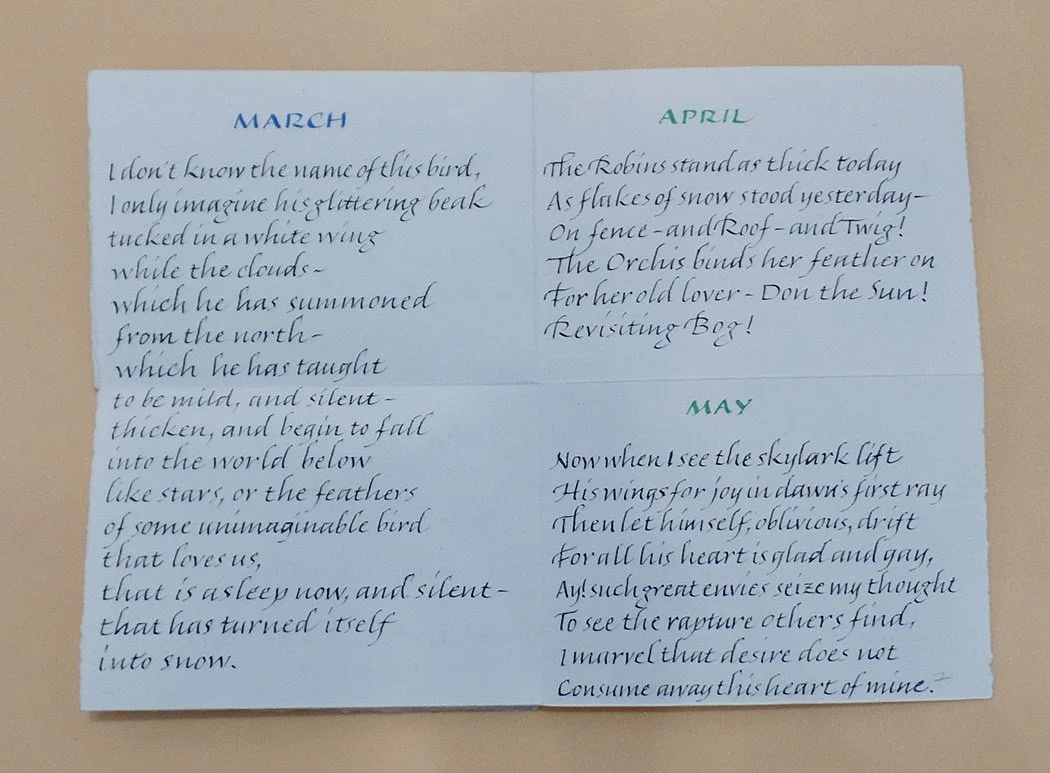 MARCH
I don't know the name of this bird,
I only imagine his glittering beak
tucked in a white wing
while the clouds-
which he has summoned
from the north-
which he has taught
to be mild, and silent-
thicken, and begin to fall
into the world below
like stars, or the feathers
of some unimaginable bird
that loves us,
that is asleep now, and silent-
that has turned itself
into snow.
APRIL
The Robins stand as thick today
As flakes of snow stood yesterday-
On fence-and Roof-and Twig!
The Orchis binds her feather on
For her old lover-Don the Sun!
Revisiting Bog!
MAY
Now when I see the skylark lift
His wings for joy in dawn's first ray
Then let himself, oblivious, drift
For all his heart is glad and gay,
Ay! such great envies seize my thought
To see the rapture others find,
I marvel that desire does not
Consume away this heart of mine.